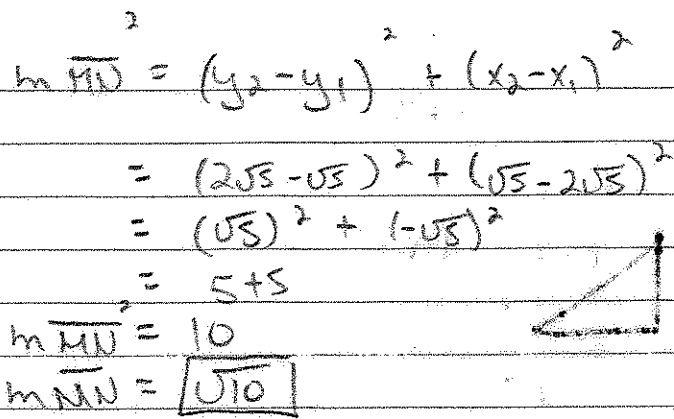 m MN² = (y₂-y₁)² + (x₂-x₁)²
= (2√5-√5)² + (√5-2√5)²
= (√5)² + (-√5)²
= 5+5
m MN² = 10
m MN = √10